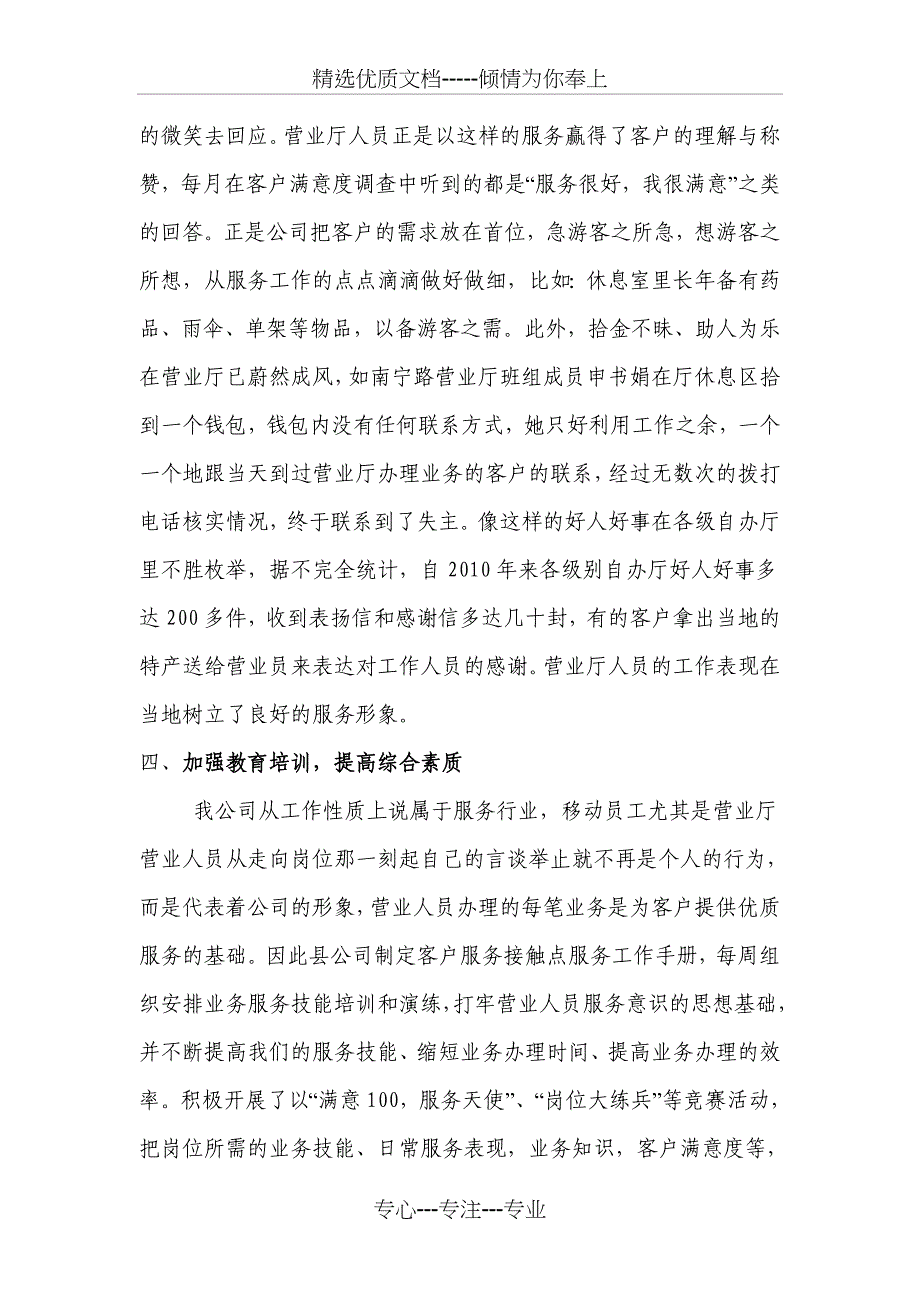 精选优质文档-----倾情为你奉上
的微笑去回应。营业厅人员正是以这样的服务赢得了客户的理解与称
赞，每月在客户满意度调查中听到的都是“服务很好，我很满意”之类
的回答。正是公司把客户的需求放在首位，急游客之所急，想游客之
所想，从服务工作的点点滴滴做好做细，比如：休息室里长年备有药
品、雨伞、单架等物品，以备游客之需。此外，拾金不昧、助人为乐
在营业厅已蔚然成风，如南宁路营业厅班组成员申书娟在厅休息区拾
到一个钱包，钱包内没有任何联系方式，她只好利用工作之余，一个
一个地跟当天到过营业厅办理业务的客户的联系，经过无数次的拨打
电话核实情况，终于联系到了失主。像这样的好人好事在各级自办厅
里不胜枚举，据不完全统计，自 2010 年来各级别自办厅好人好事多
达 200 多件，收到表扬信和感谢信多达几十封，有的客户拿出当地的
特产送给营业员来表达对工作人员的感谢。营业厅人员的工作表现在
当地树立了良好的服务形象。
四、加强教育培训，提高综合素质
我公司从工作性质上说属于服务行业，移动员工尤其是营业厅
营业人员从走向岗位那一刻起自己的言谈举止就不再是个人的行为，
而是代表着公司的形象，营业人员办理的每笔业务是为客户提供优质
服务的基础。因此县公司制定客户服务接触点服务工作手册，每周组
织安排业务服务技能培训和演练，打牢营业人员服务意识的思想基础，
并不断提高我们的服务技能、缩短业务办理时间、提高业务办理的效
率。积极开展了以“满意 100，服务天使”、“岗位大练兵”等竞赛活动，
把岗位所需的业务技能、日常服务表现，业务知识，客户满意度等，
专心---专注---专业